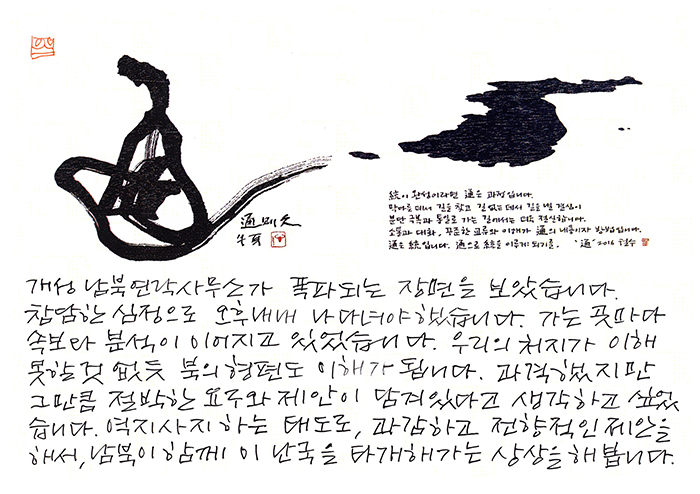 通明天
統이 완성이라면 通은 과정입니다.
막아 둔 데서 길을 찾고 길 없는 데서 길을 낼 결심이
분단 극복과 통일로 가는 길에서는 더욱 절실합니다.
소통과 대화, 꾸준한 교류와 이해가 通의 내용이자 방법입니다.
通은 統입니다. 通으로 統을 이루게 되기를. '通' 2016 철수
개성 남북연락사무소가 폭파되는 장면을 보았습니다.
참담한 심정으로 오후내내 나다녀야 했습니다. 가는 곳마다
속보와 분석이 이어지고 있었습니다. 우리의 처지가 이해
못할 것 없듯 북의 형편도 이해가 됩니다. 과격했지만
그만큼 절박한 요구와 제안이 담겨있다고 생각하고 싶었
습니다. 역지사지 하는 태도로, 과감하고 전향적인 제안을
해서, 남북이 함께 이 난국을 타개해가는 상상을 해봅니다.